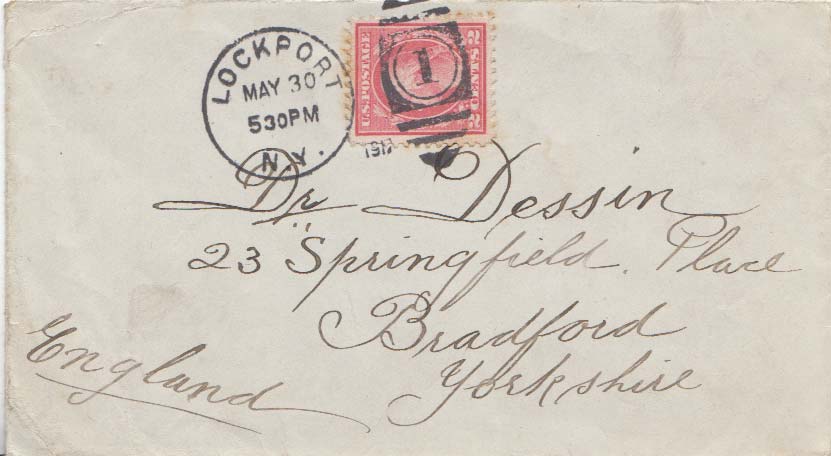 LOCKPORT
MAY 30
530PM
N.Y.
U.S. POSTAGE
1
Dr Dessin
23 Springfield. Place
Bradford
Yorkshire
England